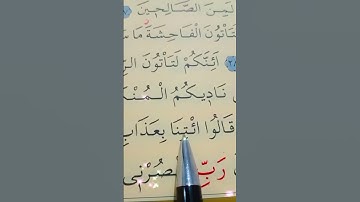 لَمِنَ الصَّالِحِينَ
لَتَأْتُونَ الْفَاحِشَةَ مَا
أَئِنَّكُمْ لَتَأْتُونَ
نَادِيكُمُ الْمُنْكَ
قَالُوا ائْتِنَا بِعَذَابِ
رَبِّ انْصُرْنِي